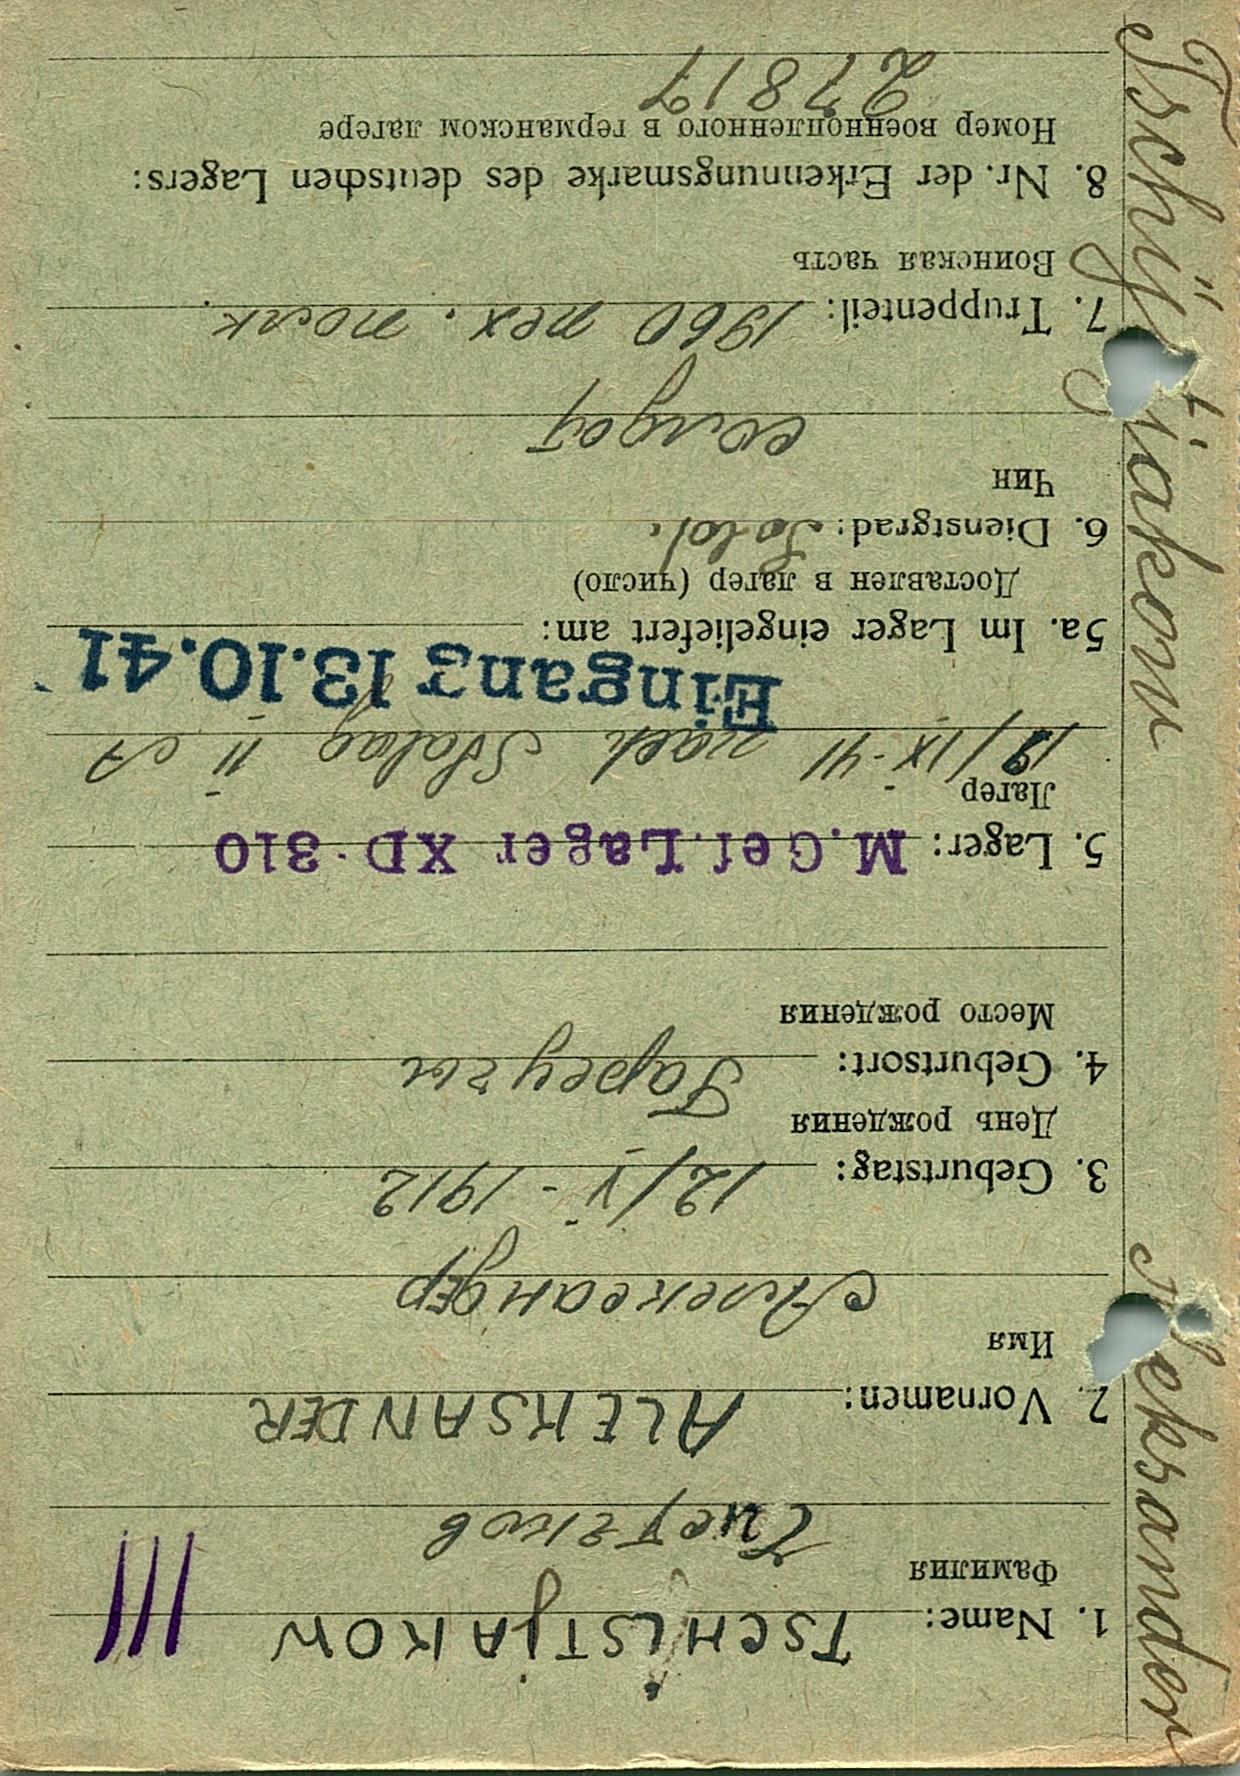 1. Name: TSCHISTJAKOW
Фамилия
Чистяков
III
2. Vornamen: ALEKSANDER
Имя
Александр
3. Geburtstag: 12/V - 1912
День рождения
4. Geburtsort:
Место рождения
5. Lager: M. Gef. Lager XD 310
Лагер
12/IX-41 nach Stalag II A
Eingang 13.10.41
5a. Im Lager eingeliefert am:
Доставлен в лагер (число)
6. Dienstgrad: Sold.
Чин
солдат
7. Truppenteil: 1960 пех. полк
Воинская часть
8. Nr. der Erkennungsmarke des deutschen Lagers:
Номер военнопленного в германском лагере
27817
Aleksander